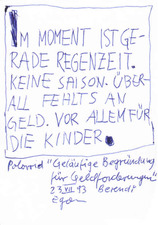 IM MOMENT IST GE-
RADE REGENZEIT.
KEINE SAISON. ÜBER-
ALL FEHLTS AN
GELD. VOR ALLEM FÜR
DIE KINDER.
Polaroid "Geläufige Begründung
für Geldforderungen"
23 VII 93 Berendt
Egon